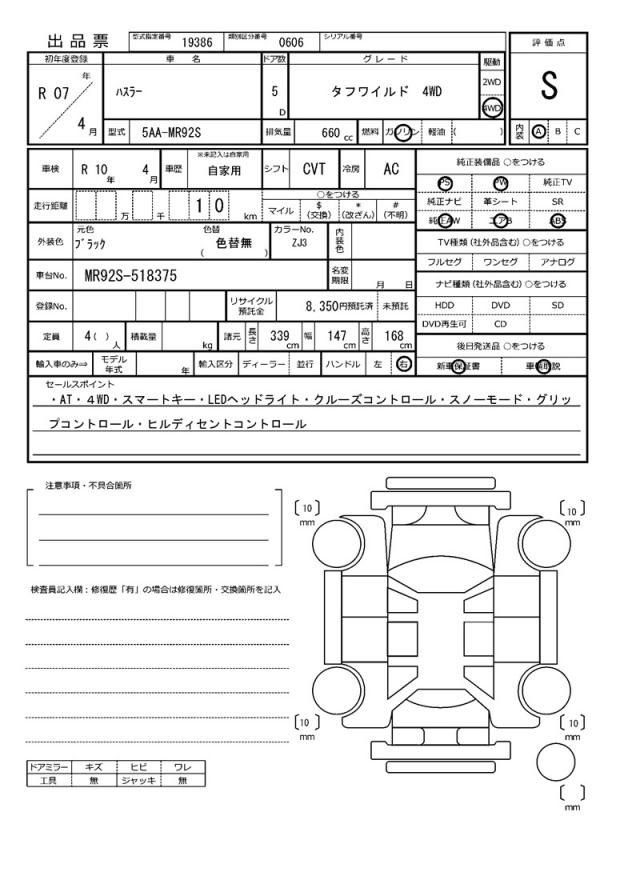 出品票 型式指定番号 19386 類別区分番号 0606 シリアル番号
評価点
S
内装 A B C
初年度登録 車名 ドア数 グレード 駆動
R 07 年 4 月 ハスラー 5 D タフワイルド 4WD 2WD 4WD
型式 5AA-MR92S 排気量 660 cc 燃料 ガソリン 軽油 ( )
車検 R 10 年 4 月 車歴 ※未記入は自家用 自家用 シフト CVT 冷房 AC
走行距離 万 千 1 0 km ○をつける マイル $ (交換) * (改ざん) # (不明)
外装色 元色 ブラック 色替 色替無 ( ) カラーNo. ZJ3 内装色
車台No. MR92S-518375 名変期限 月 日
登録No. リサイクル預託金 8,350円預託済 未預託
定員 4( ) 人 積載量 kg 諸元 長さ 339 cm 幅 147 cm 高さ 168 cm
輸入車のみ⇒ モデル年式 年 輸入区分 ディーラー 並行 ハンドル 左 右
純正装備品 ○をつける
PS PW 純正TV
純正ナビ 革シート SR
純正AW エアB ABS
TV種類 (社外品含む) ○をつける
フルセグ ワンセグ アナログ
ナビ種類 (社外品含む) ○をつける
HDD DVD SD
DVD再生可 CD
後日発送品 ○をつける
新車保証書 車輌取説
セールスポイント
・AT・4WD・スマートキー・LEDヘッドライト・クルーズコントロール・スノーモード・グリッ
プコントロール・ヒルディセントコントロール
注意事項・不具合箇所
検査員記入欄：修復歴「有」の場合は修復箇所・交換箇所を記入
ドアミラー キズ ヒビ ワレ
工具 無 ジャッキ 無
〔10〕mm
〔10〕mm
〔10〕mm
〔10〕mm
〔 〕mm